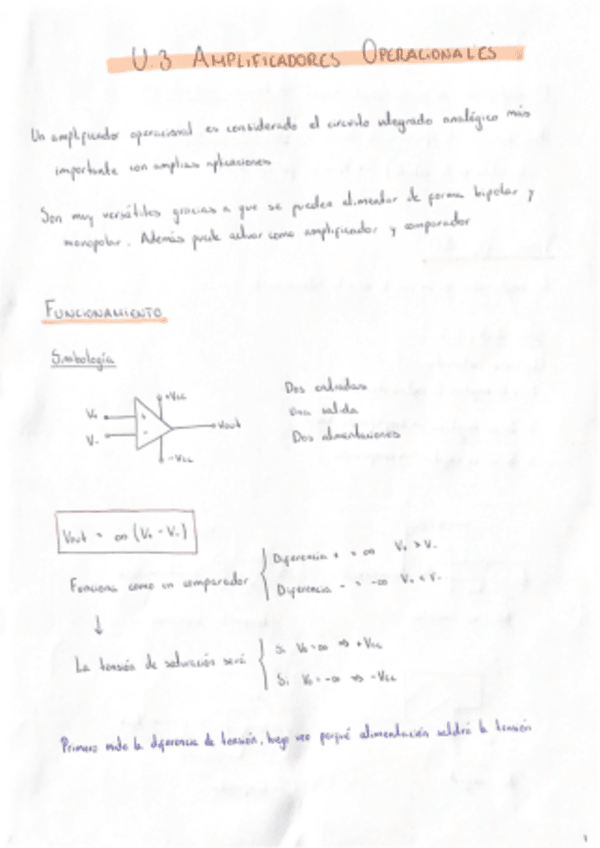 U.3 AMPLIFICADORES OPERACIONALES
Un amplificador operacional es considerado el circuito integrado analógico más
importante con amplias aplicaciones
Son muy versátiles gracias a que se pueden alimentar de forma bipolar y
monopolar. Además puede actuar como amplificador y comparador
FUNCIONAMIENTO
Simbología
+Vcc
V+
+
V-
-
Vout
-Vcc
Dos entradas
una salida
Dos alimentaciones
Vout = ∞ (V+ - V-)
Funciona como un comparador
Diferencia + = ∞ V+ > V-
Diferencia - = -∞ V+ < V-
↓
La tensión de saturación será
Si Vo = ∞ ⇒ +Vcc
Si Vo = -∞ ⇒ -Vcc
Primero mido la diferencia de tensión, luego veo porqué alimentación saldrá la tensión